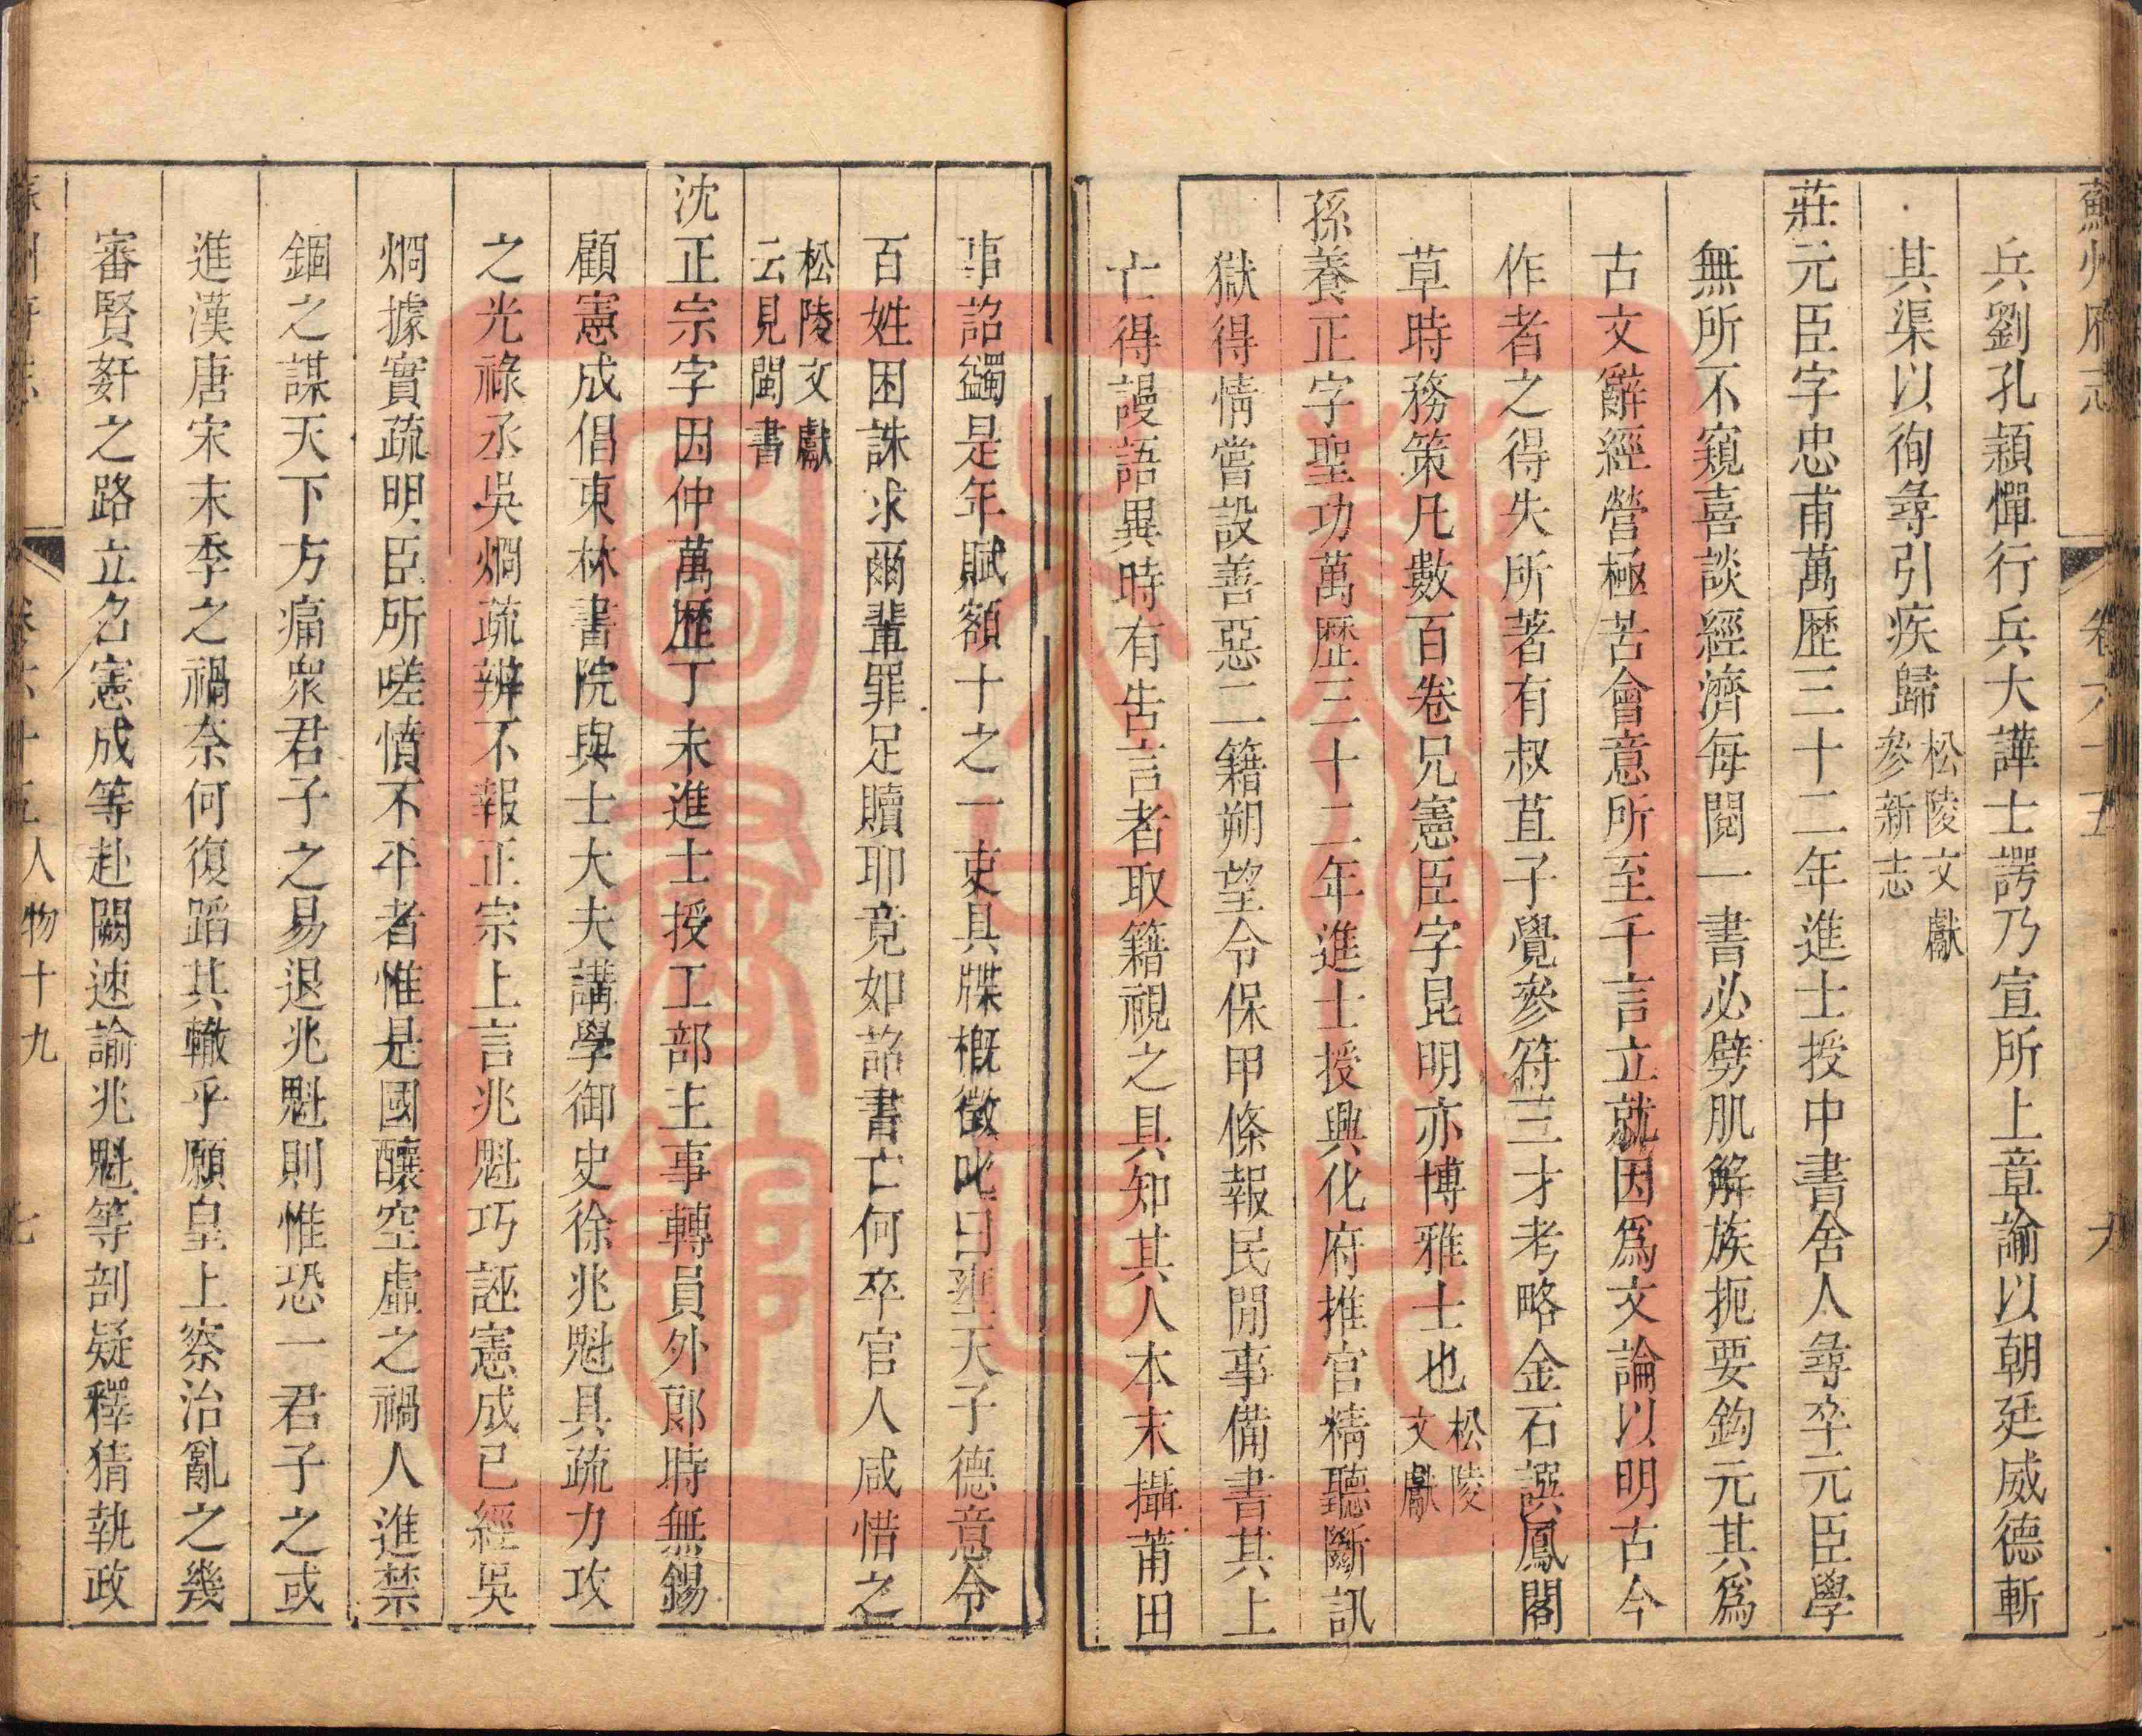 蘇州府志
卷六十五
兵劉孔潁憚行兵大譁士諤乃宣所上章諭以朝廷威德斬
其渠以徇尋引疾歸松陵文獻
參新志
莊元臣字忠甫萬歴三十二年進士授中書舍人尋卒元臣學
無所不窺喜談經濟每閱一書必劈肌解族扼要鈎元其爲
古文辭經營極苦會意所至千言立就因爲文論以明古今
作者之得失所著有叔苴子覺參符三才考略金石譔鳳閣
草時務策凡數百卷兄憲臣字昆明亦博雅士也松陵
文獻
孫養正字聖功萬歴三十二年進士授興化府推官精聽斷訊
獄得情嘗設善惡二籍朔望令保甲條報民閒事備書其上
亡得謾語異時有告言者取籍視之具知其人本末攝莆田
事詔蠲是年賦額十之一吏具牒概徵叱曰聖天子德意令
百姓困誅求爾輩罪足贖耶竟如詔書亡何卒官人咸惜之
松陵文獻
云見閩書
沈正宗字因仲萬歴丁未進士授工部主事轉員外郎時無錫
顧憲成倡東林書院與士大夫講學御史徐兆魁具疏力攻
之光祿丞吳烱疏辨不報正宗上言兆魁巧誣憲成已經吳
烱據實疏明臣所嗟憤不平者惟是國釀空虛之禍人進禁
錮之謀天下方痛衆君子之易退兆魁則惟恐一君子之或
進漢唐宋末季之禍奈何復蹈其轍乎願皇上察治亂之幾
審賢姧之路立名憲成等赴闕速諭兆魁等剖疑釋猜執政
蘇州府志
卷六十五人物十九
七